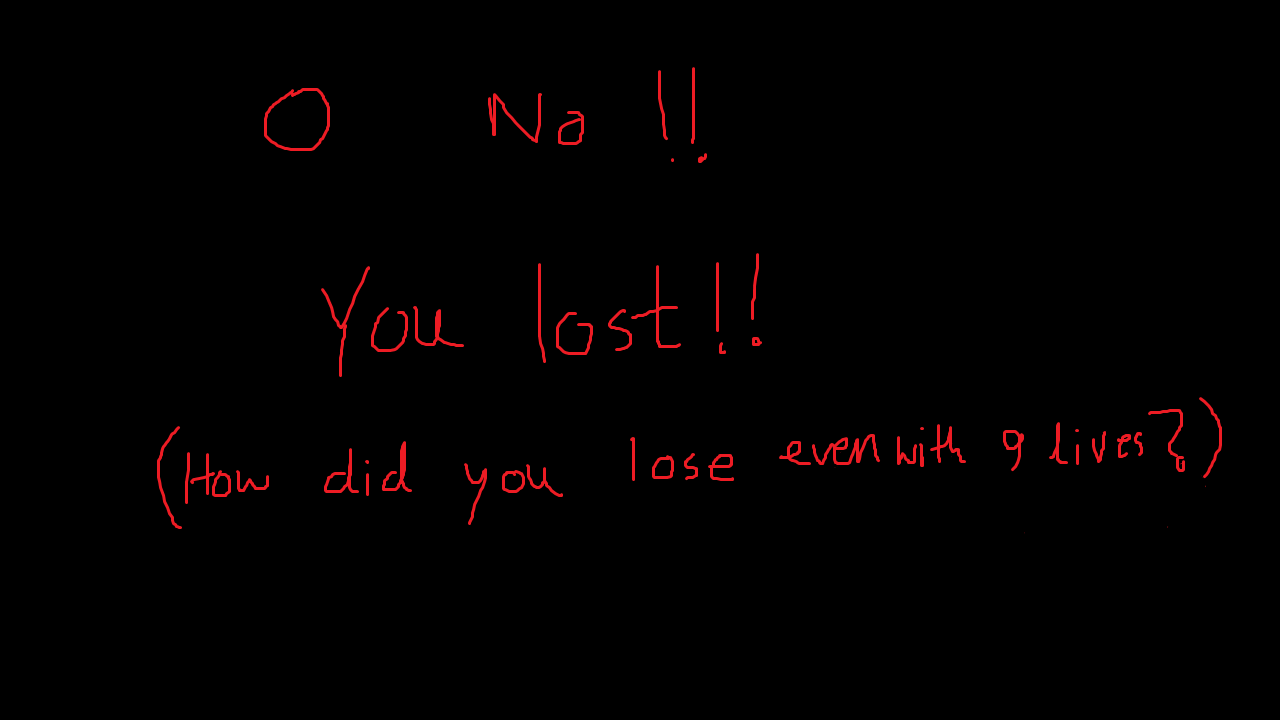 O No !!
You lost!!
(How did you lose even with 9 lives?)